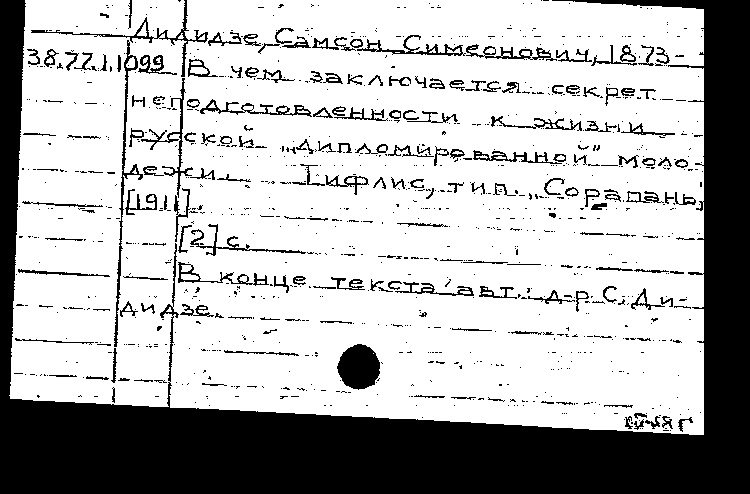 Дидидзе, Самсон Симеонович, 1873-
38.77.1.1099 В чем заключается секрет
неподготовленности к жизни
русской „дипломированной" моло-
дежи. Тифлис, тип. „Сорапань,
[1911].
[2] с.
В конце текста авт.: д-р С. Ди-
дидзе.